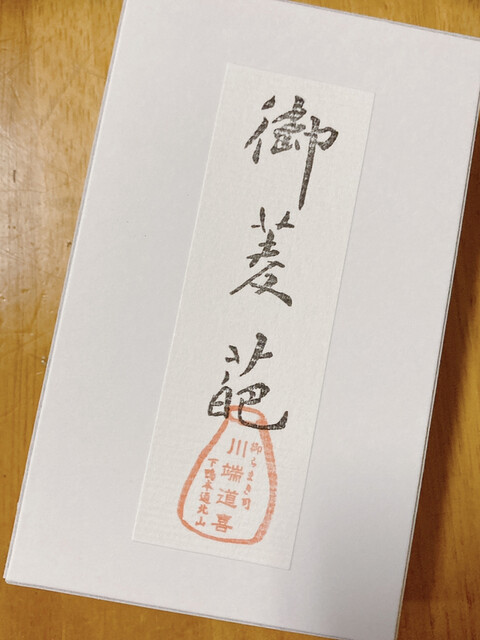 御菱葩
御ちまき司
川端道喜
下鴨本通北山